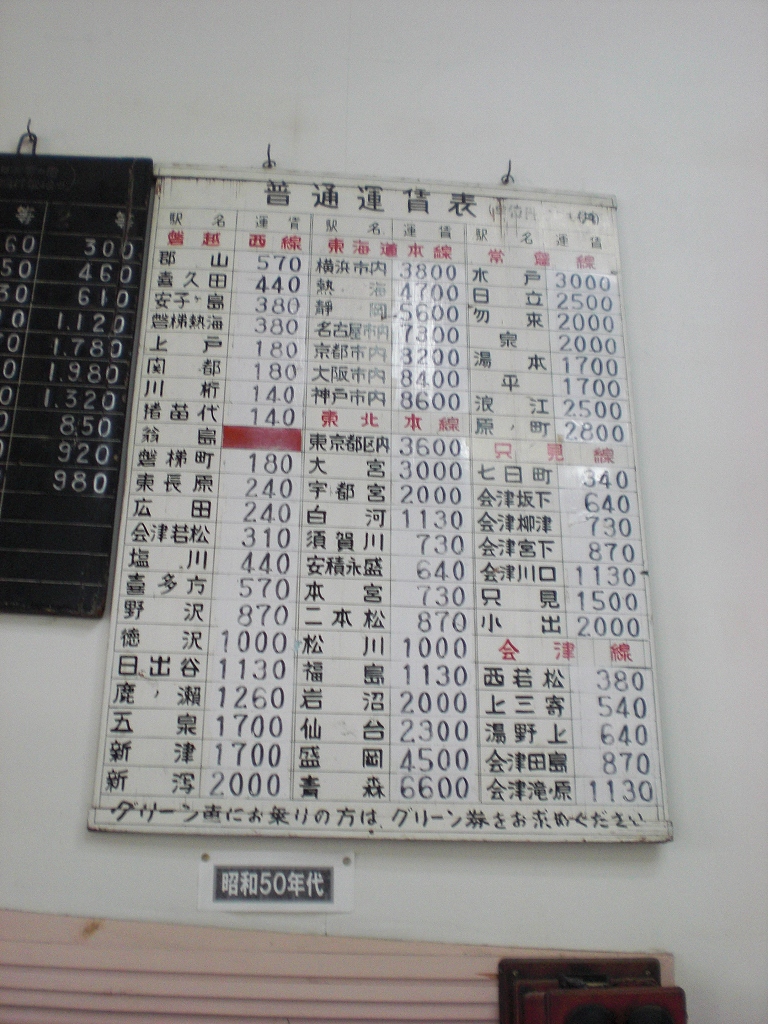 普通運賃表
駅名 運賃 駅名 運賃 駅名 運賃
磐越西線
郡山 570
喜久田 440
安子ヶ島 380
磐梯熱海 380
上戸 180
関都 180
川桁 140
猪苗代 140
翁島
磐梯町 180
東長原 240
広田 240
会津若松 310
塩川 440
喜多方 570
野沢 870
徳沢 1000
日出谷 1130
鹿ノ瀬 1260
五泉 1700
新津 1700
新潟 2000
東海道本線
横浜市内 3800
熱海 4700
静岡 5600
名古屋市内 7300
京都市内 8200
大阪市内 8400
神戸市内 8600
東北本線
東京都区内 3600
大宮 3000
宇都宮 2000
白河 1130
須賀川 730
安積永盛 640
本宮 730
二本松 870
松川 1000
福島 1130
岩沼 2000
仙台 2300
盛岡 4500
青森 6600
常磐線
水戸 3000
日立 2500
勿来 2000
泉 2000
湯本 1700
平 1700
浪江 2500
原ノ町 2800
只見線
七日町 340
会津坂下 640
会津柳津 730
会津宮下 870
会津川口 1130
只見 1500
小出 2000
会津線
西若松 380
上三寄 540
湯野上 640
会津田島 870
会津滝ノ原 1130
グリーン車にお乗りの方は、グリーン券をお求めください
昭和50年代
等 等
60 300
50 460
30 610
0 1.120
0 1.780
0 1.980
0 1.320
0 850
0 920
0 980